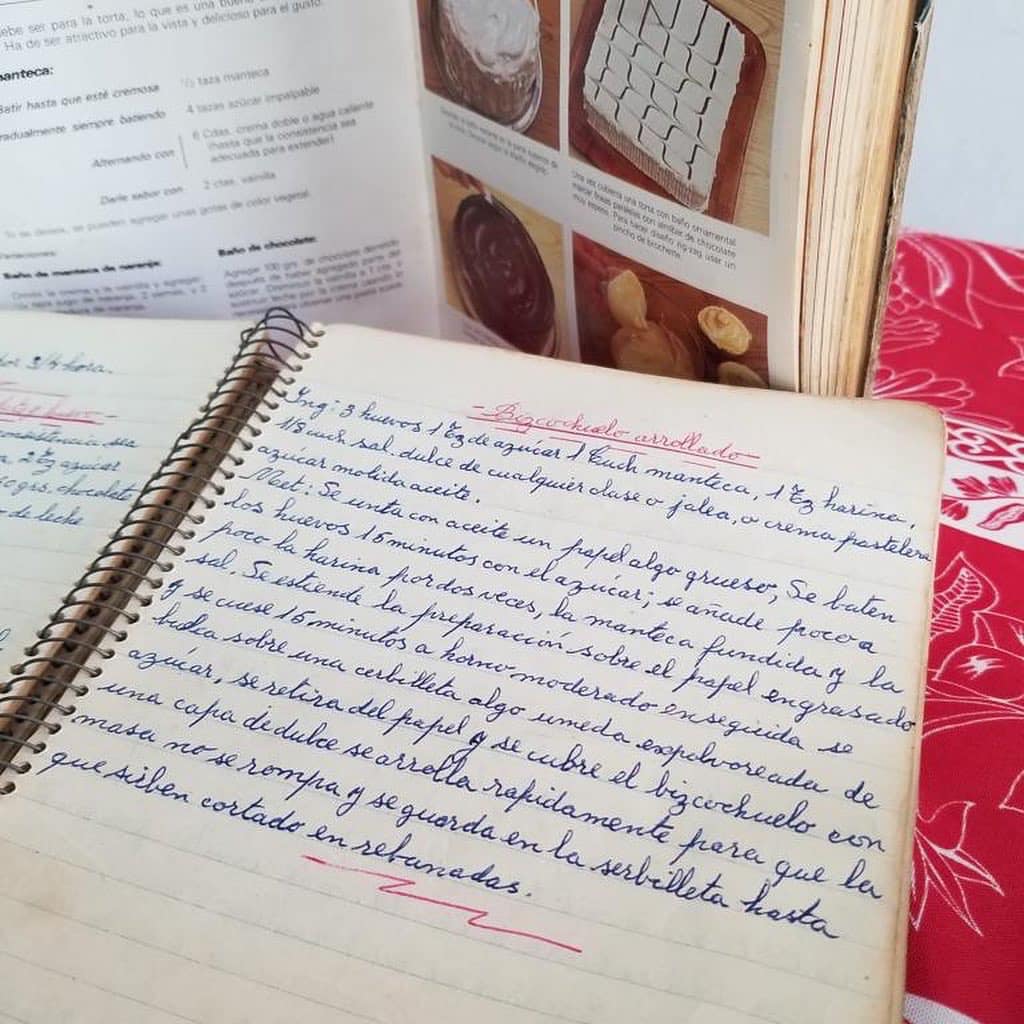 ebe ser para la torta, lo que es una buena
Ha de ser atractivo para la vista y delicioso para el gusto.
manteca:
Batir hasta que esté cremosa
½ taza manteca
gradualmente siempre batiendo
4 tazas azúcar impalpable
Alternando con
6 Cdas. crema doble o agua caliente
(hasta que la consistencia sea
adecuada para extender)
Darle sabor con
2 ctas. vainilla
Si se desea, se pueden agregar unas gotas de color vegetal.
Variaciones:
Baño de manteca de naranja:
Baño de chocolate:
Agregar 100 grs. de chocolate derretido
Una vez cubierta una torta con baño ornamental
marcar líneas paralelas con almíbar de chocolate
muy espeso. Para hacer diseño zig-zag usar un
pincho de brochette.
por 3/4 hora.
consistencia sea
2 Tz azúcar
grs. chocolate
de leche
- Bizcochuelo arrollado -
Ing: 3 huevos 1 Tz de azúcar 1 Cuch manteca, 1 Tz harina,
1/8 cuch sal. dulce de cualquier clase o jalea, o crema pastelera
azúcar molida aceite.
Met: Se unta con aceite un papel algo grueso, Se baten
los huevos 15 minutos con el azúcar; se añade poco a
poco la harina por dos veces, la manteca fundida y la
sal. Se estiende la preparación sobre el papel engrasado
y se cuese 15 minutos a horno moderado enseguida se
buelca sobre una cerbilleta algo umeda espolvoreada de
azúcar, se retira del papel y se cubre el bizcochuelo con
una capa de dulce se arrolla rapidamente para que la
masa no se rompa y se guarda en la serbilleta hasta
que sirben cortado en rebanadas.